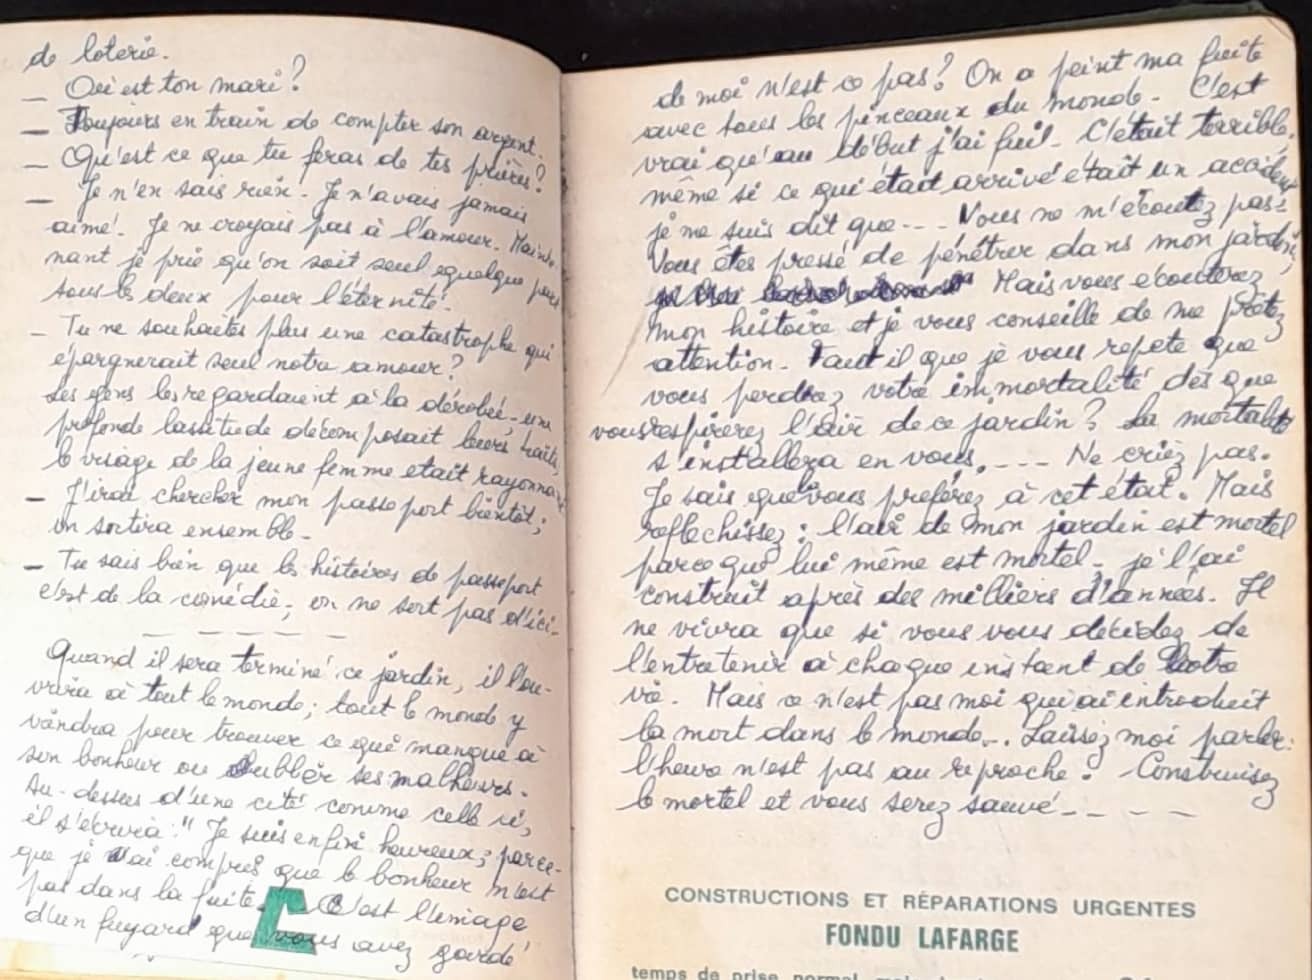 de loterie.
— Où est ton mari?
— Toujours en train de compter son argent.
— Qu'est ce que tu feras de tes prières?
— Je n'en sais rien. Je n'avais jamais
aimé. Je ne croyais pas à l'amour. Mainte
nant je prie qu'on soit seul quelque part
tous les deux pour l'éternité.
— Tu ne souhaites plus une catastrophe qui
épargnerait seul notre amour?
Les gens les regardaient à la dérobée; une
profonde lassitude décomposait leurs traits,
le visage de la jeune femme etait rayonnant
— J'irai chercher mon passeport bientôt;
on sortira ensemble.
— Tu sais bien que les histoires de passeport
c'est de la comédie; on ne sort pas d'ici.
— — — — —
Quand il sera terminé ce jardin, il l'ou-
vrira à tout le monde; tout le monde y
viendra pour trouver ce qui manque à
son bonheur ou oublier ses malheurs.
Au-dessus d'une cité comme celle ci,
il s'écriera: "Je suis enfin heureux; parce-
que j'ai compris que le bonheur n'est
pas dans la fuite. C'est l'image
d'un fuyard que vous avez gardé
de moi n'est ce pas? On a peint ma fuite
avec tous les pinceaux du monde. C'est
vrai qu'au début j'ai fui. C'était terrible,
même si ce qui était arrivé était un accident
je me suis dit que... Vous ne m'écoutez pas!
Vous êtes pressé de pénétrer dans mon jardin;
Mais vous ecouterez
mon histoire et je vous conseille de me prêtez
attention. Faut il que je vous repete que
vous perdrez votre immortalité dès que
vous respirerez l'air de ce jardin? La mortalité
s'installera en vous.... Ne criez pas.
Je sais que vous preférez à cet état. Mais
reflechissez: l'air de mon jardin est mortel
parce que lui même est mortel. je l'ai
construit après des milliers d'années. Il
ne vivra que si vous vous décidez de
l'entretenir à chaque instant de votre
vie. Mais ce n'est pas moi qui ai introduit
la mort dans le monde... Laissez moi parler:
l'heure n'est pas au reproche. Construisez
le mortel et vous serez sauvé - - - -
CONSTRUCTIONS ET RÉPARATIONS URGENTES
FONDU LAFARGE
temps de prise normal, mais